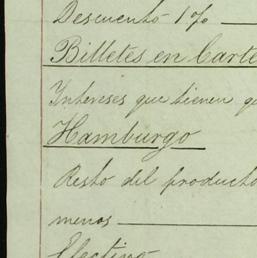 Descuento 1%
Billetes en Carte
Intereses que tienen q
Hamburgo
Resto del producto
menos
Efectivo